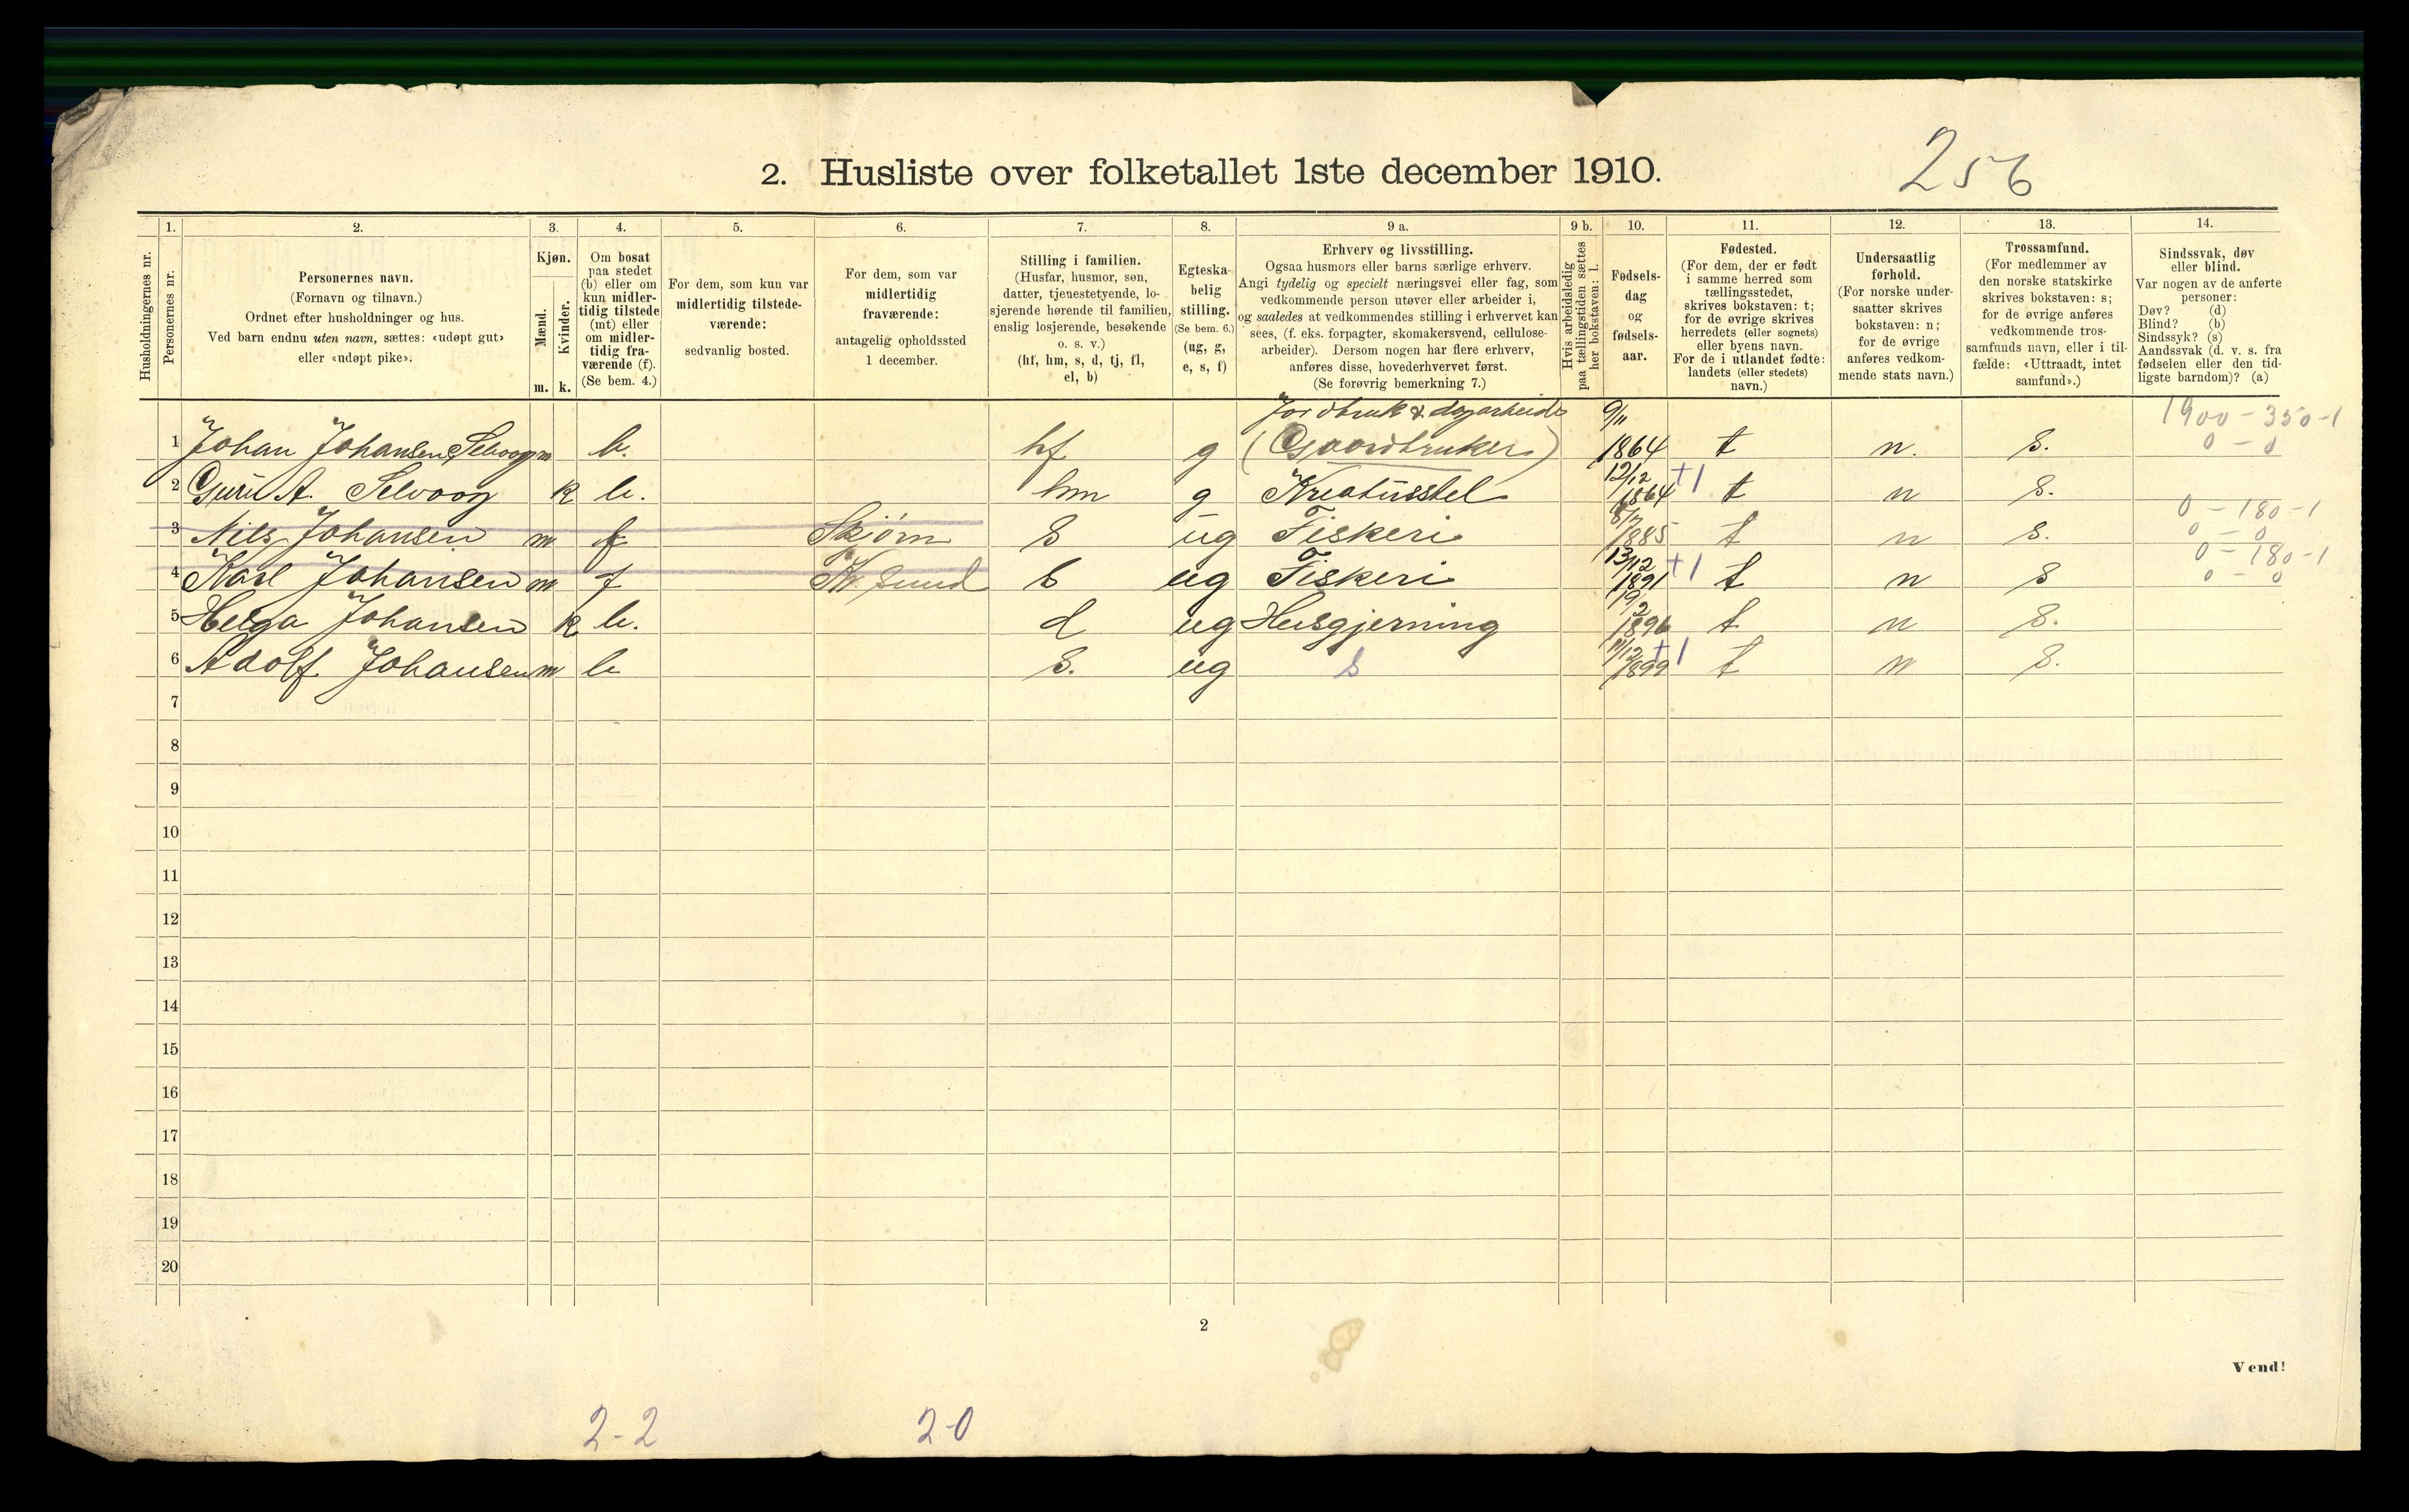 2. Husliste over folketallet 1ste december 1910.
256
Husholdningernes nr.
1.
Personernes nr.
2.
Personernes navn.
(Fornavn og tilnavn.)
Ordnet efter husholdninger og hus.
Ved barn endnu uten navn, sættes: «udøpt gut»
eller «udøpt pike».
3.
Kjøn.
Mænd.
Kvinder.
m. k.
4.
Om bosat
paa stedet
(b) eller om
kun midler-
tidig tilstede
(mt) eller
om midler-
tidig fra-
værende (f).
(Se bem. 4.)
5.
For dem, som kun var
midlertidig tilstede-
værende:
sedvanlig bosted.
6.
For dem, som var
midlertidig
fraværende:
antagelig opholdssted
1 december.
7.
Stilling i familien.
(Husfar, husmor, søn,
datter, tjenestetyende, lo-
sjerende hørende til familien,
enslig losjerende, besøkende
o. s. v.)
(hf, hm, s, d, tj, fl,
el, b)
8.
Egteska-
belig
stilling.
(Se bem. 6.)
(ug, g,
e, s, f)
9 a.
Erhverv og livsstilling.
Ogsaa husmors eller barns særlige erhverv.
Angi tydelig og specielt næringsvei eller fag, som
vedkommende person utøver eller arbeider i,
og saaledes at vedkommendes stilling i erhvervet kan
sees, (f. eks. forpagter, skomakersvend, cellulose-
arbeider). Dersom nogen har flere erhverv,
anføres disse, hovederhvervet først.
(Se forøvrig bemerkning 7.)
9 b.
Hvis arbeidsledig
paa tællingstiden sættes
her bokstaven: l.
10.
Fødsels-
dag
og
fødsels-
aar.
11.
Fødested.
(For dem, der er født
i samme herred som
tællingsstedet,
skrives bokstaven: t;
for de øvrige skrives
herredets (eller sognets)
eller byens navn.
For de i utlandet fødte:
landets (eller stedets)
navn.)
12.
Undersaatlig
forhold.
(For norske under-
saatter skrives
bokstaven: n;
for de øvrige
anføres vedkom-
mende stats navn.)
13.
Trossamfund.
(For medlemmer av
den norske statskirke
skrives bokstaven: s;
for de øvrige anføres
vedkommende tros-
samfunds navn, eller i til-
fælde: «Uttraadt, intet
samfund».)
14.
Sindssvak, døv
eller blind.
Var nogen av de anførte
personer:
Døv? (d)
Blind? (b)
Sindssyk? (s)
Aandssvak (d. v. s. fra
fødselen eller den tid-
ligste barndom)? (a)
Jordbruk & dagarbeide 9/11 1900-350-1
1 Johan Johansen Selvoog m b. hf g (Gaardbruker) 1864 t n. s. 0-0
2 Guru A. Selvoog k b. hm g Kreaturstel 12/12 1864 +1 t n s.
0-180-1
3 Nils Johansen m f Skjørn s ug Fiskeri 1885 t n s. 0-0
0-180-1
4 Karl Johansen m f Kr. sund s ug Fiskeri 13/12 1891 +1 t n s 0-0
5 Helga Johansen k b. d ug Husgjerning 19/2 1896 t n s.
6 Adolf Johansen m b s. ug s 11/12 1899 +1 t n s.
7
8
9
10
11
12
13
14
15
16
17
18
19
20
2
Vend!
2-2 2-0